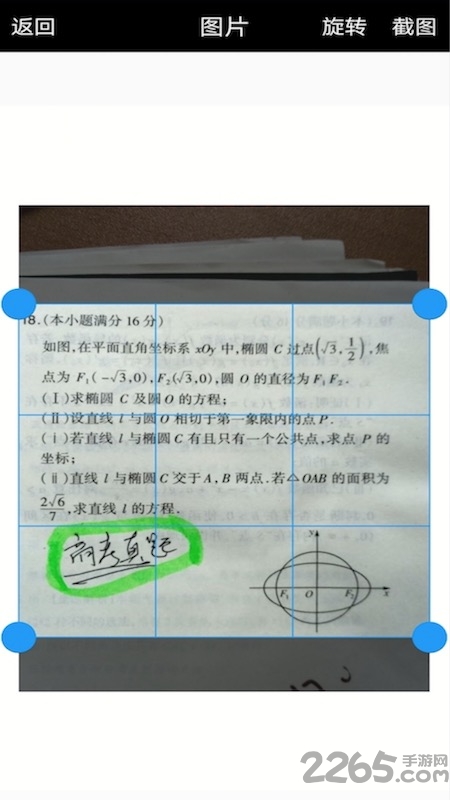 返回 图片 旋转 截图
18.(本小题满分 16 分)
如图,在平面直角坐标系 xOy 中,椭圆 C 过点(√3,1/2),焦
点为 F₁(-√3,0),F₂(√3,0),圆 O 的直径为 F₁F₂.
(Ⅰ)求椭圆 C 及圆 O 的方程;
(Ⅱ)设直线 l 与圆 O 相切于第一象限内的点 P.
(ⅰ)若直线 l 与椭圆 C 有且只有一个公共点,求点 P 的
坐标;
(ⅱ)直线 l 与椭圆 C 交于 A,B 两点.若△OAB 的面积为
2√6/7,求直线 l 的方程.
高考真题
y
F₁ O F₂ x
2265.com 手游网